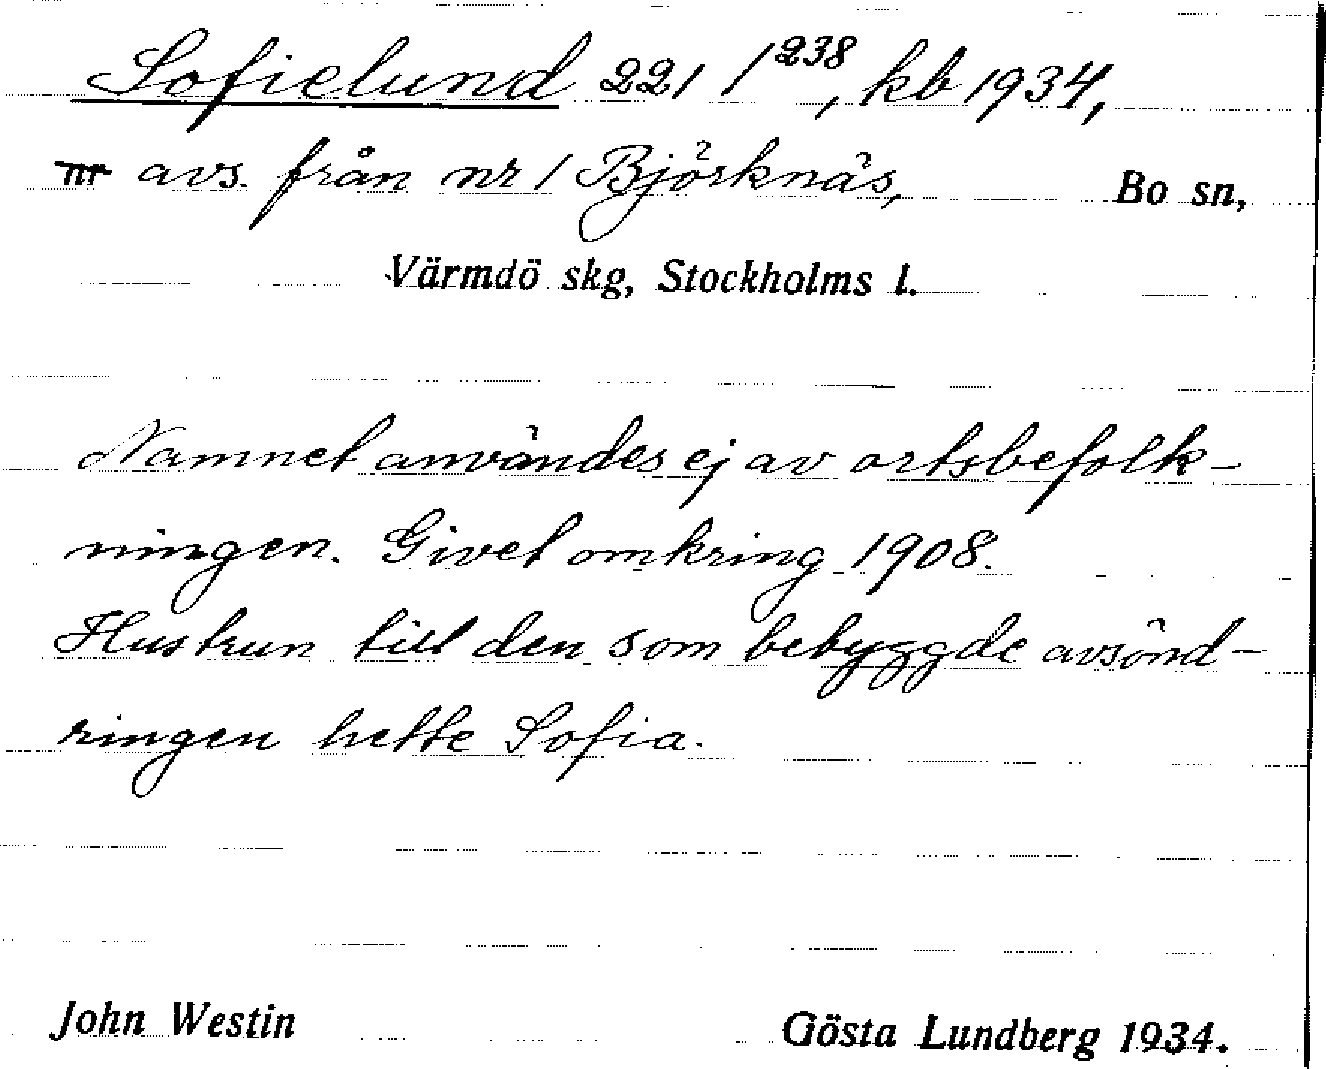 Sofielund 221 1²³⁸, kb 1934,
nr avs. från nr 1 Björknäs, Bo sn,
Värmdö skg, Stockholms l.
Namnet användes ej av ortsbefolk-
ningen. Givet omkring 1908.
Hustrun till den som bebyggde avsönd-
ringen hette Sofia.
John Westin Gösta Lundberg 1934.